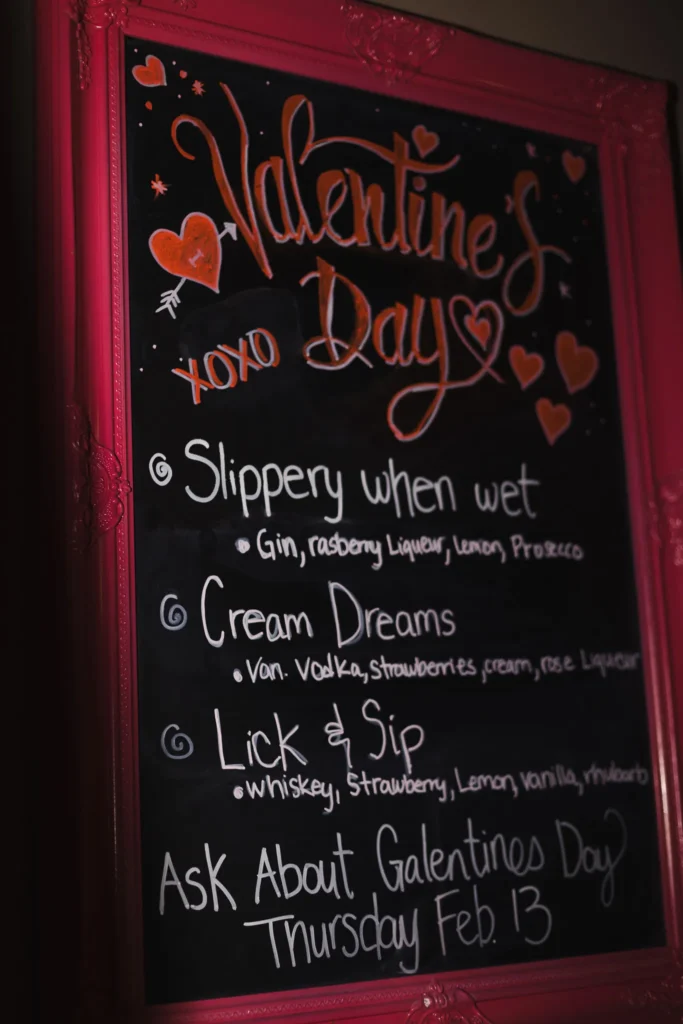 Valentine's
Day
XOXO
Slippery when wet
• Gin, rasberry Liqueur, Lemon, Prosecco
Cream Dreams
• Van. Vodka, strawberries, cream, rose Liqueur
Lick & Sip
• whiskey, Strawberry, Lemon, vanilla, rhubarb
Ask About Galentines Day
Thursday Feb. 13